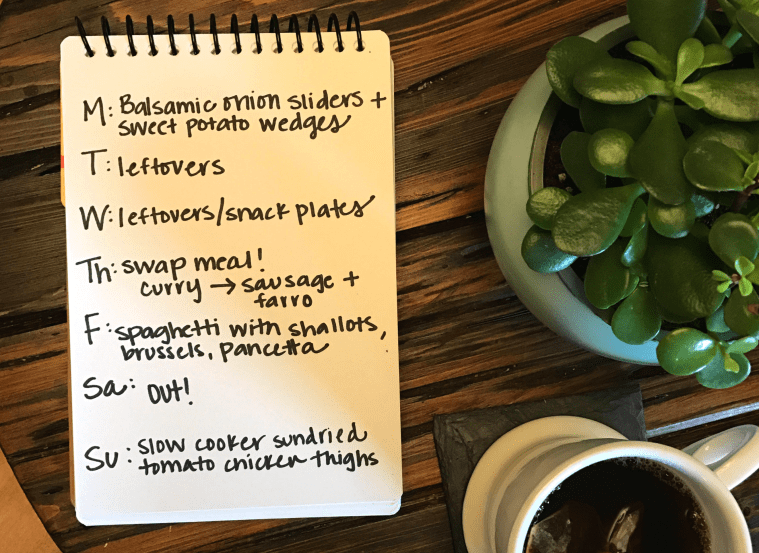 M: Balsamic onion sliders +
sweet potato wedges
T: leftovers
W: leftovers/snack plates
Th: swap meal!
curry → sausage +
farro
F: spaghetti with shallots,
brussels, pancetta
Sa: out!
Su: slow cooker sundried
tomato chicken thighs